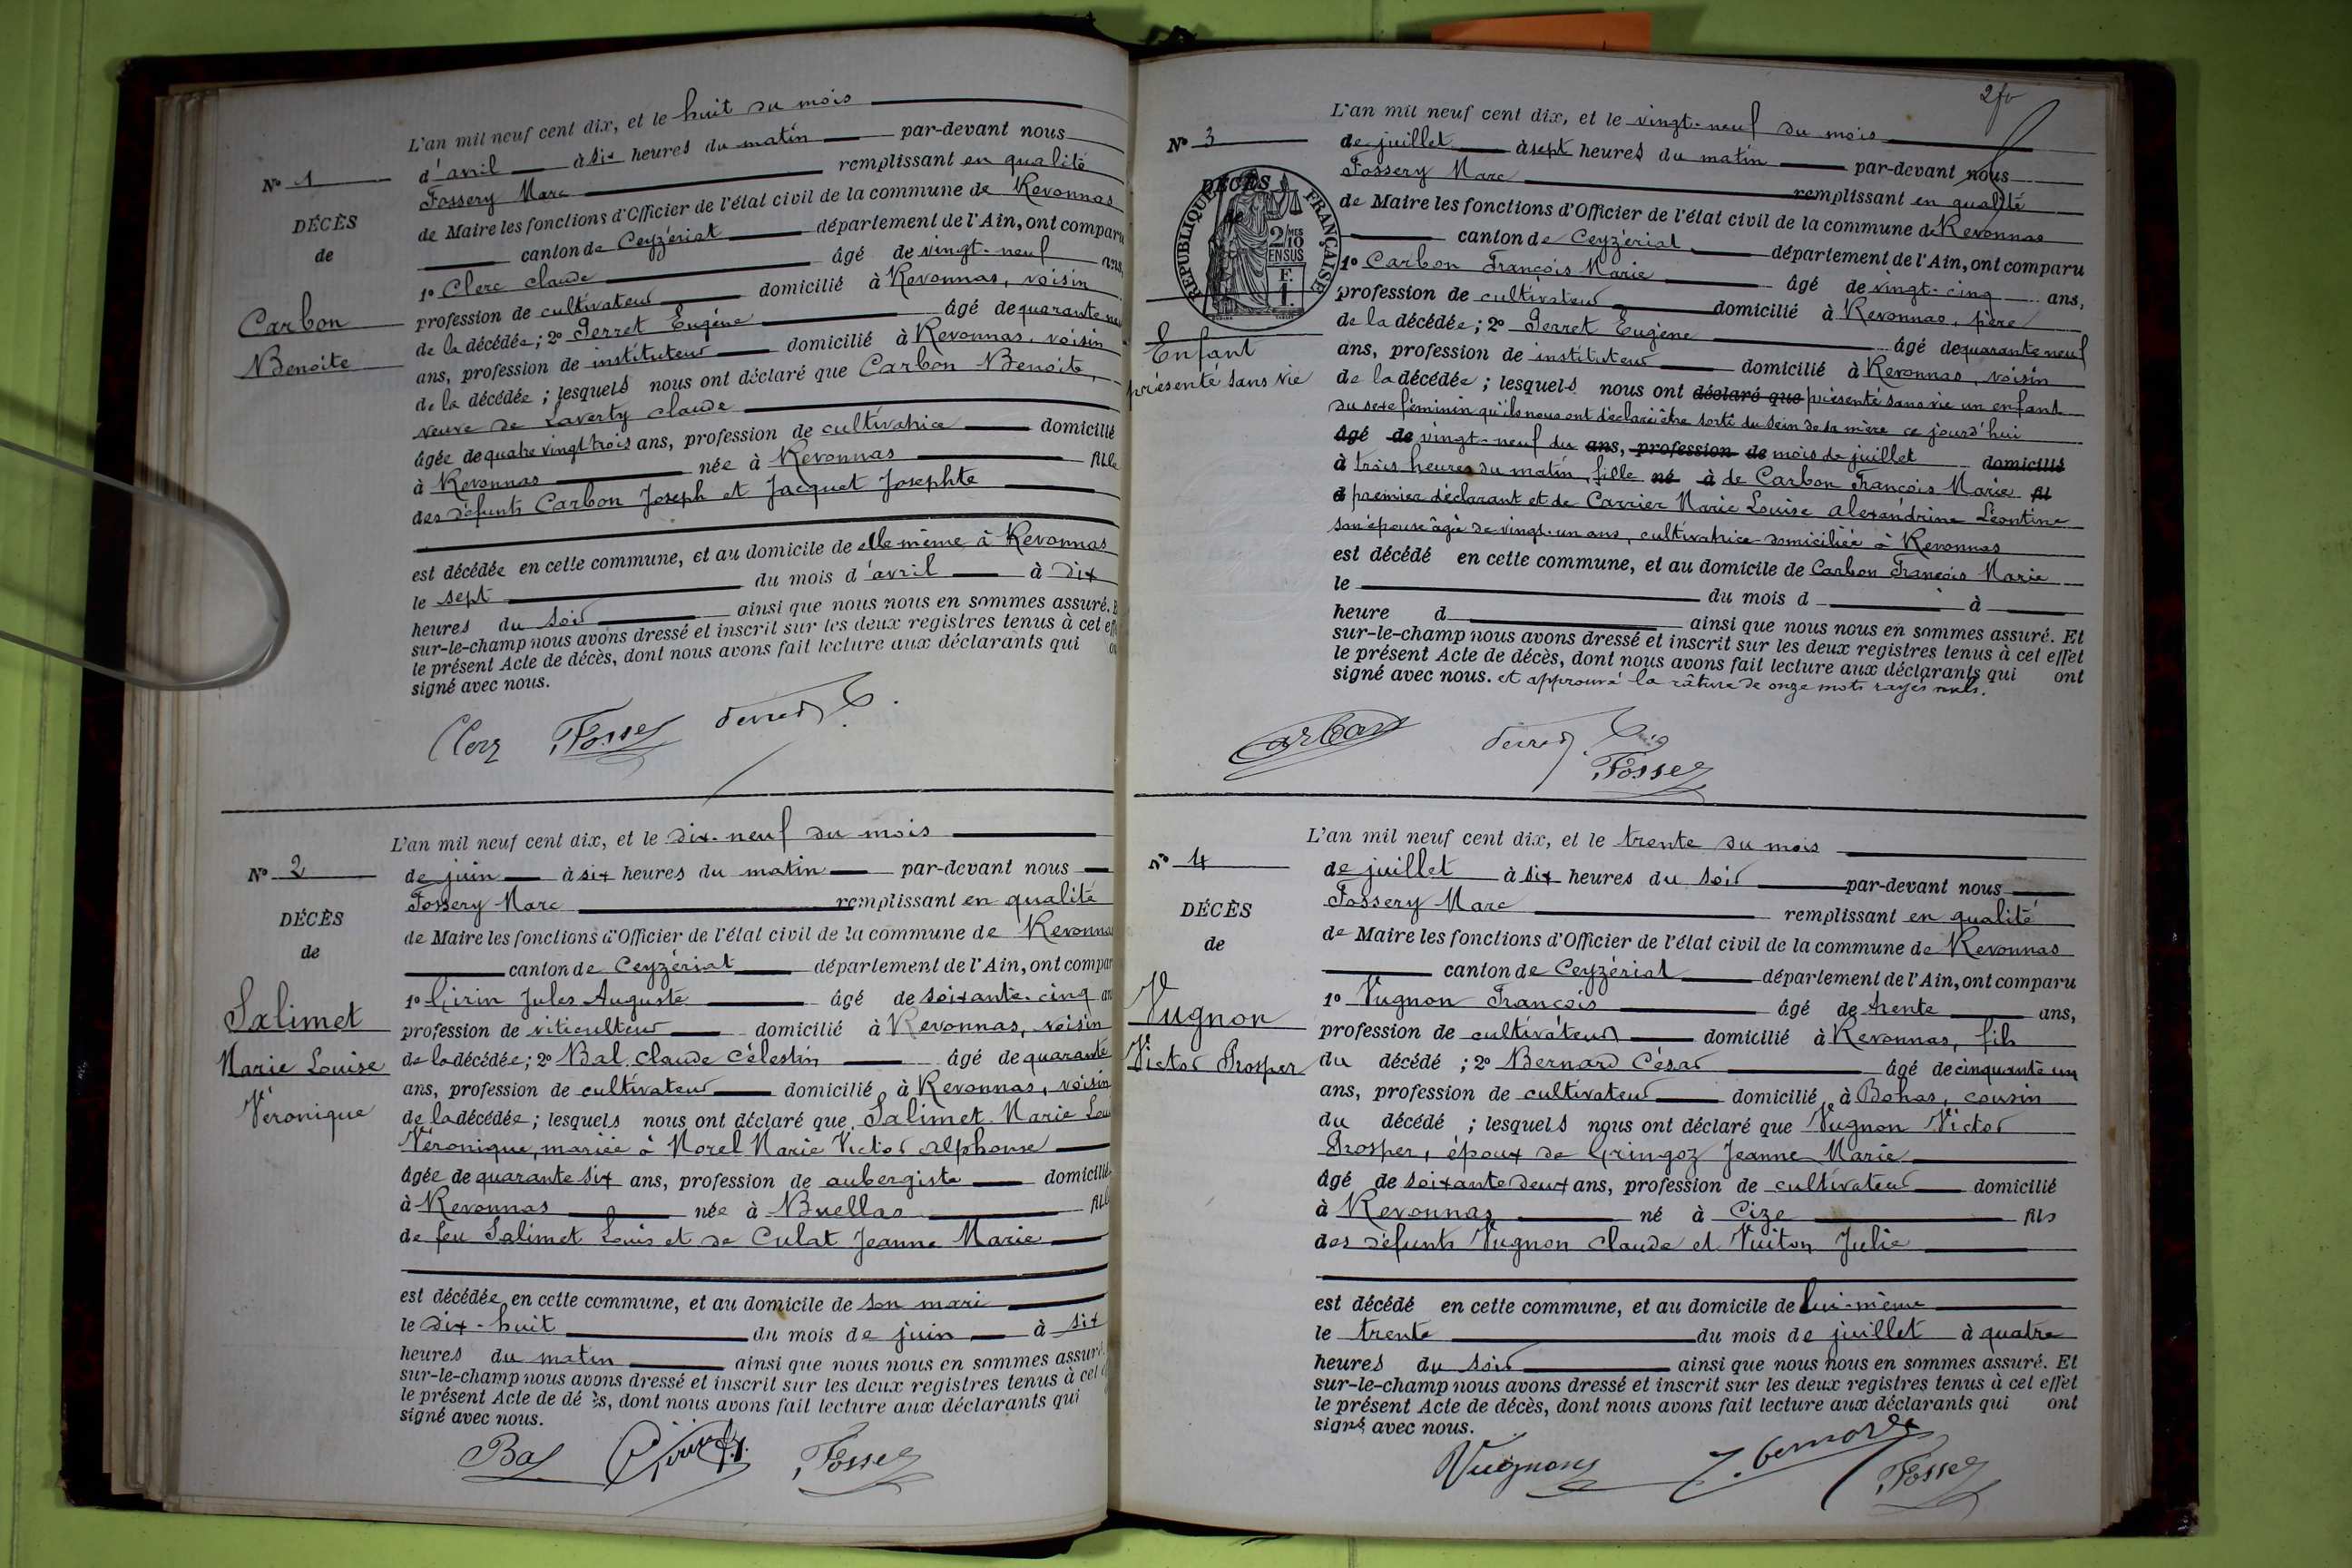 L'an mil neuf cent dix, et le huit du mois
d'avril à six heures du matin par-devant nous
Fossery Marc remplissant en qualité
de Maire les fonctions d'Officier de l'état civil de la commune de Revonnas
canton de Ceyzériat département de l'Ain, ont comparu
1º Clerc Claude âgé de vingt-neuf ans,
profession de cultivateur domicilié à Revonnas, voisin
de la décédée ; 2º Perret Eugène âgé de quarante neuf
ans, profession de instituteur domicilié à Revonnas, voisin
de la décédée ; lesquels nous ont déclaré que Carbon Benoite,
veuve de Laverty Claude
âgée de quatre vingt trois ans, profession de cultivatrice domicilié
à Revonnas née à Revonnas fille
des défunts Carbon Joseph et Jacquet Josephte
est décédée en cette commune, et au domicile de elle même à Revonnas
le sept du mois d'avril à dix
heures du soir ainsi que nous nous en sommes assuré. E
sur-le-champ nous avons dressé et inscrit sur les deux registres tenus à cet effe
le présent Acte de décès, dont nous avons fait lecture aux déclarants qui o
signé avec nous.
Nº 1
DÉCÈS
de
Carbon
Benoite
Clerc Fossery Perret E.
L'an mil neuf cent dix, et le dix-neuf du mois
de juin à six heures du matin par-devant nous
Fossery Marc remplissant en qualité
de Maire les fonctions d'Officier de l'état civil de la commune de Revonna
canton de Ceyzériat département de l'Ain, ont compar
1º Girin Jules Auguste âgé de soixante-cinq an
profession de viticulteur domicilié à Revonnas, voisin
de la décédée ; 2º Bal Claude Célestin âgé de quarante
ans, profession de cultivateur domicilié à Revonnas, voisin
de la décédée ; lesquels nous ont déclaré que Salimet Marie Loui
Véronique, mariée à Morel Marie Victor Alphonse
âgée de quarante six ans, profession de aubergiste domicilié
à Revonnas née à Buellas fille
de feu Salimet Louis et de Culat Jeanne Marie
est décédée en cette commune, et au domicile de son mari
le dix-huit du mois de juin à six
heures du matin ainsi que nous nous en sommes assuré.
sur-le-champ nous avons dressé et inscrit sur les deux registres tenus à cet e
le présent Acte de décès, dont nous avons fait lecture aux déclarants qui
signé avec nous.
Nº 2
DÉCÈS
de
Salimet
Marie Louise
Véronique
Bal Girin Fossery
2 fo
L'an mil neuf cent dix, et le vingt-neuf du mois
de juillet à sept heures du matin par-devant nous
Fossery Marc remplissant en qualité
de Maire les fonctions d'Officier de l'état civil de la commune de Revonnas
canton de Ceyzériat département de l'Ain, ont comparu
1º Carbon François Marie âgé de vingt-cinq ans,
profession de cultivateur domicilié à Revonnas, père
de la décédée ; 2º Perret Eugène âgé de quarante neuf
ans, profession de instituteur domicilié à Revonnas, voisin
de la décédée ; lesquels nous ont déclaré que présenté sans vie un enfant
du sexe féminin qu'ils nous ont déclaré être sorti du sein de sa mère ce jourd'hui
âgé de vingt-neuf du ans, profession de mois de juillet domicilié
à trois heures du matin, fille né à de Carbon François Marie fil
d premier déclarant et de Carrier Marie Louise Alexandrine Léontine
son épouse âgée de vingt-un ans, cultivatrice domiciliée à Revonnas
est décédé en cette commune, et au domicile de Carbon François Marie
le du mois d à
heure d ainsi que nous nous en sommes assuré. Et
sur-le-champ nous avons dressé et inscrit sur les deux registres tenus à cet effet
le présent Acte de décès, dont nous avons fait lecture aux déclarants qui ont
signé avec nous. et approuvé la râture de onze mots rayés nuls.
Nº 3
DÉCÈS
de
RÉPUBLIQUE FRANÇAISE
2/10 MES
EN SUS
F.
1.
Enfant
présenté sans vie
Carbon Perret Eug Fossery
L'an mil neuf cent dix, et le trente du mois
de juillet à six heures du soir par-devant nous
Fossery Marc remplissant en qualité
de Maire les fonctions d'Officier de l'état civil de la commune de Revonnas
canton de Ceyzériat département de l'Ain, ont comparu
1º Vugnon François âgé de trente ans,
profession de cultivateur domicilié à Revonnas, fils
du décédé ; 2º Bernard César âgé de cinquante un
ans, profession de cultivateur domicilié à Bohas, cousin
du décédé ; lesquels nous ont déclaré que Vugnon Victor
Prosper, époux de Gringoz Jeanne Marie
âgé de soixante deux ans, profession de cultivateur domicilié
à Revonnas né à Cize fils
des défunts Vugnon Claude et Vuiton Julie
est décédé en cette commune, et au domicile de lui-même
le trente du mois de juillet à quatre
heures du soir ainsi que nous nous en sommes assuré. Et
sur-le-champ nous avons dressé et inscrit sur les deux registres tenus à cet effet
le présent Acte de décès, dont nous avons fait lecture aux déclarants qui ont
signé avec nous.
Nº 4
DÉCÈS
de
Vugnon
Victor Prosper
Vugnon Bernard Fossery